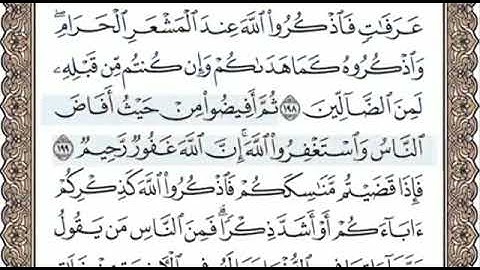 عَرَفَٰتٍ فَٱذْكُرُوا۟ ٱللَّهَ عِندَ ٱلْمَشْعَرِ ٱلْحَرَامِ ۖ
وَٱذْكُرُوهُ كَمَا هَدَىٰكُمْ وَإِن كُنتُم مِّن قَبْلِهِۦ
لَمِنَ ٱلضَّآلِّينَ ١٩٨ ثُمَّ أَفِيضُوا۟ مِنْ حَيْثُ أَفَاضَ
ٱلنَّاسُ وَٱسْتَغْفِرُوا۟ ٱللَّهَ ۚ إِنَّ ٱللَّهَ غَفُورٌ رَّحِيمٌ ١٩٩
فَإِذَا قَضَيْتُم مَّنَٰسِكَكُمْ فَٱذْكُرُوا۟ ٱللَّهَ كَذِكْرِكُمْ
ءَابَآءَكُمْ أَوْ أَشَدَّ ذِكْرًا ۗ فَمِنَ ٱلنَّاسِ مَن يَقُولُ